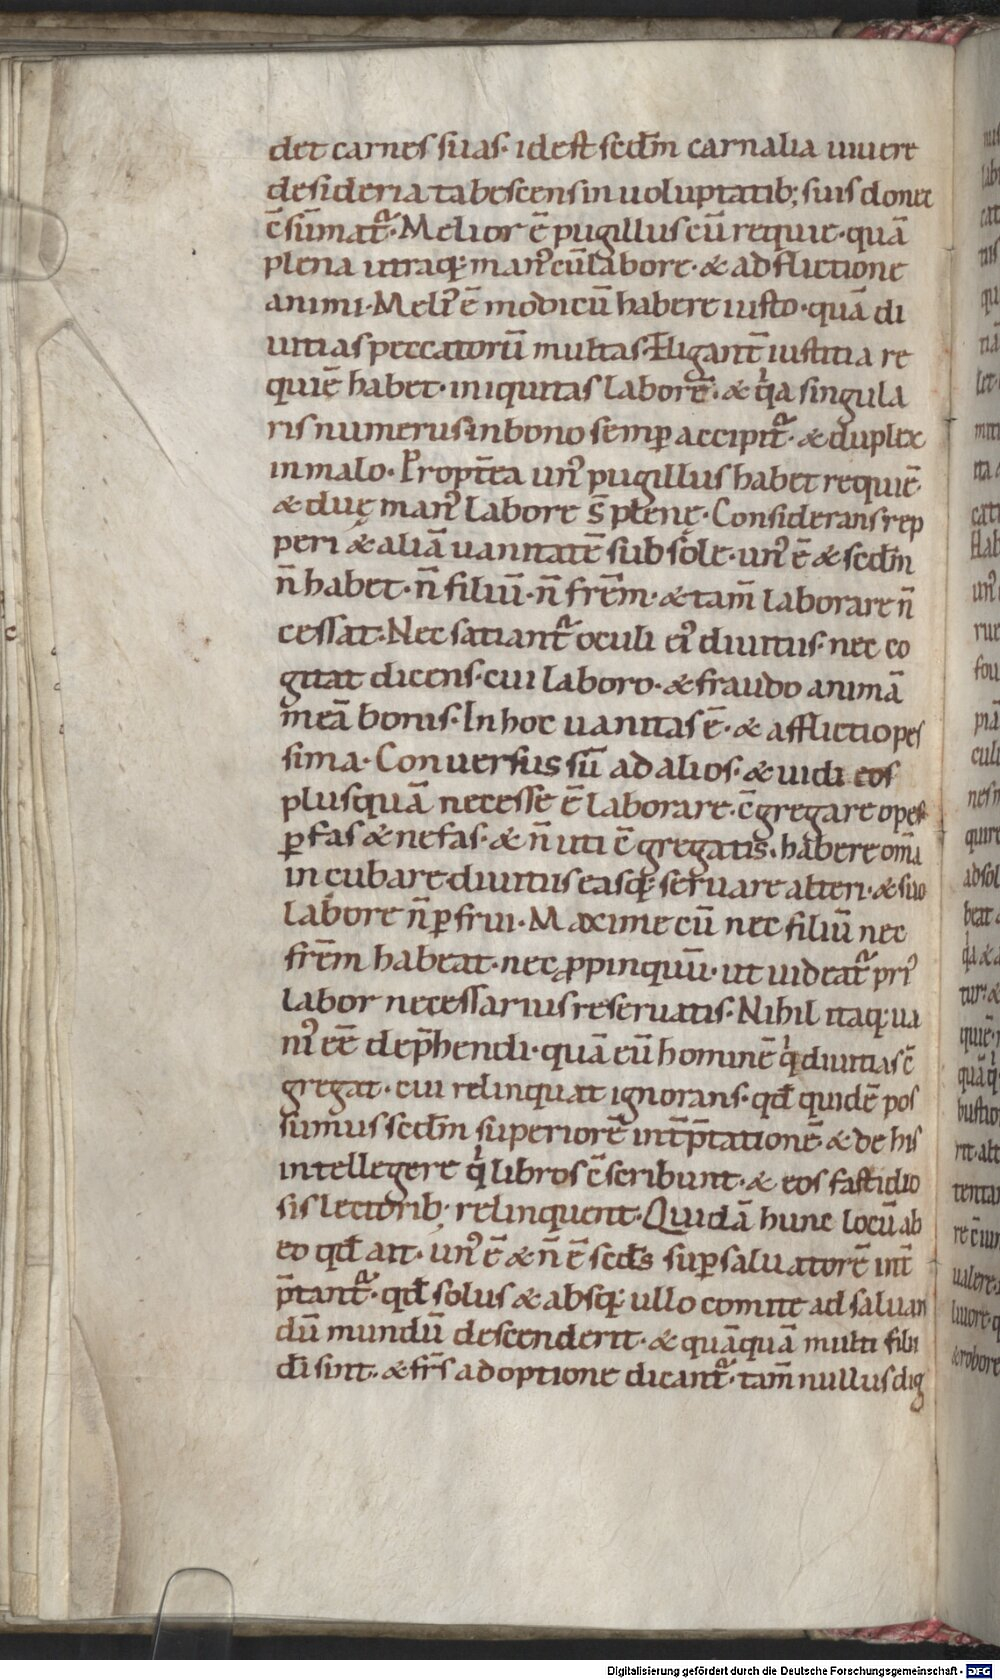 det carnes suas· idest scđm carnalia uiuere
desideria tabescens in uoluptatib; suis donec
c̄sūmat᷑· Melior ē pugillus cū requie· quā
plena utraq; man᾽ cū labore· & adflictione
animi· Meli᾽ ē modicū habere iusto· quā di
uitias peccatorū multas· Eligant̄ iustitia re
quiē habet· iniquitas laborē· & q̍a singula
ris numerus in bono semꝑ accipit᷑· & duplex
in malo· Propt̄ea un᾽ pugillus habet requiē·
& duę man᾽ labore s̄ plenę· Considerans rep
peri & aliā uanitatē sub sole· un᾽ ē & scđm
n̄ habet· n̄ filiū· n̄ fr̄em· & tam̄ laborare n̄
cessat· Nec satiant᷑ oculi ei᾽ diuitiis· nec co
gitat dicens· cui laboro· & fraudo animā
meā bonis· In hoc uanitas ē· & afflictio pes
sima· Conuersus sū ad alios· & uidi eos
plusquā necesse ē laborare· c̄gregare opes
ꝑ fas & nefas· & n̄ uti c̄gregatis· habere om̄a
incubare diuitiis easq; seruare alteri· & suo
labore n̄ ꝑfrui· Maxime cū nec filiū nec
fr̄em habeat· nec ꝓpinquū· ut uideat᷑ pri᾽
labor necessariis reseruatis· Nihil itaq; ua
ni᾽ eē dep̄hendi· quā eū hominē q̍ diuitias c̄
gregat· cui relinquat ignorans· qđ quidē pos
sumus scđm superiorē int̄p̄tationē· & de his
intellegere q̍ libros c̄scribunt· & eos fastidio
sis lectorib; relinquent· Quidā hunc locū ab
eo qđ ait· un᾽ ē & n̄ ē scđs suꝑ saluatorē int̄
p̄tant᷑· qđ solus & absq; ullo comite ad saluan
dū mundū descenderit· & quāquā multi filii
đi sint· & fr̄s adoptione dicant᷑· tam̄ nullus dig
Digitalisierung gefördert durch die Deutsche Forschungsgemeinschaft - DFG